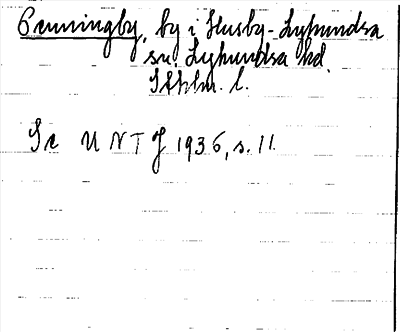 Penningby, by i Husby-Lyhundra
sn. Lyhundra hd.
Sthlm. l.
Se UNTJ 1936, s. 11.